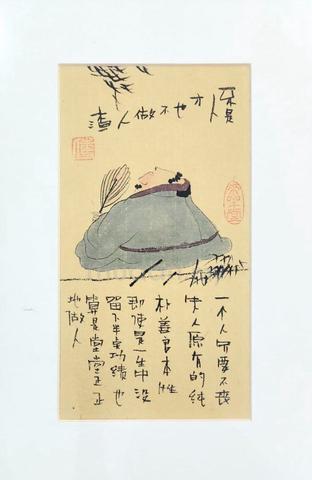 不是人才也不做人渣
一个人只要不丧
失人原有的纯
朴善良本性
即使是一生中没
留下半点功绩也
算是堂堂正正
地做人